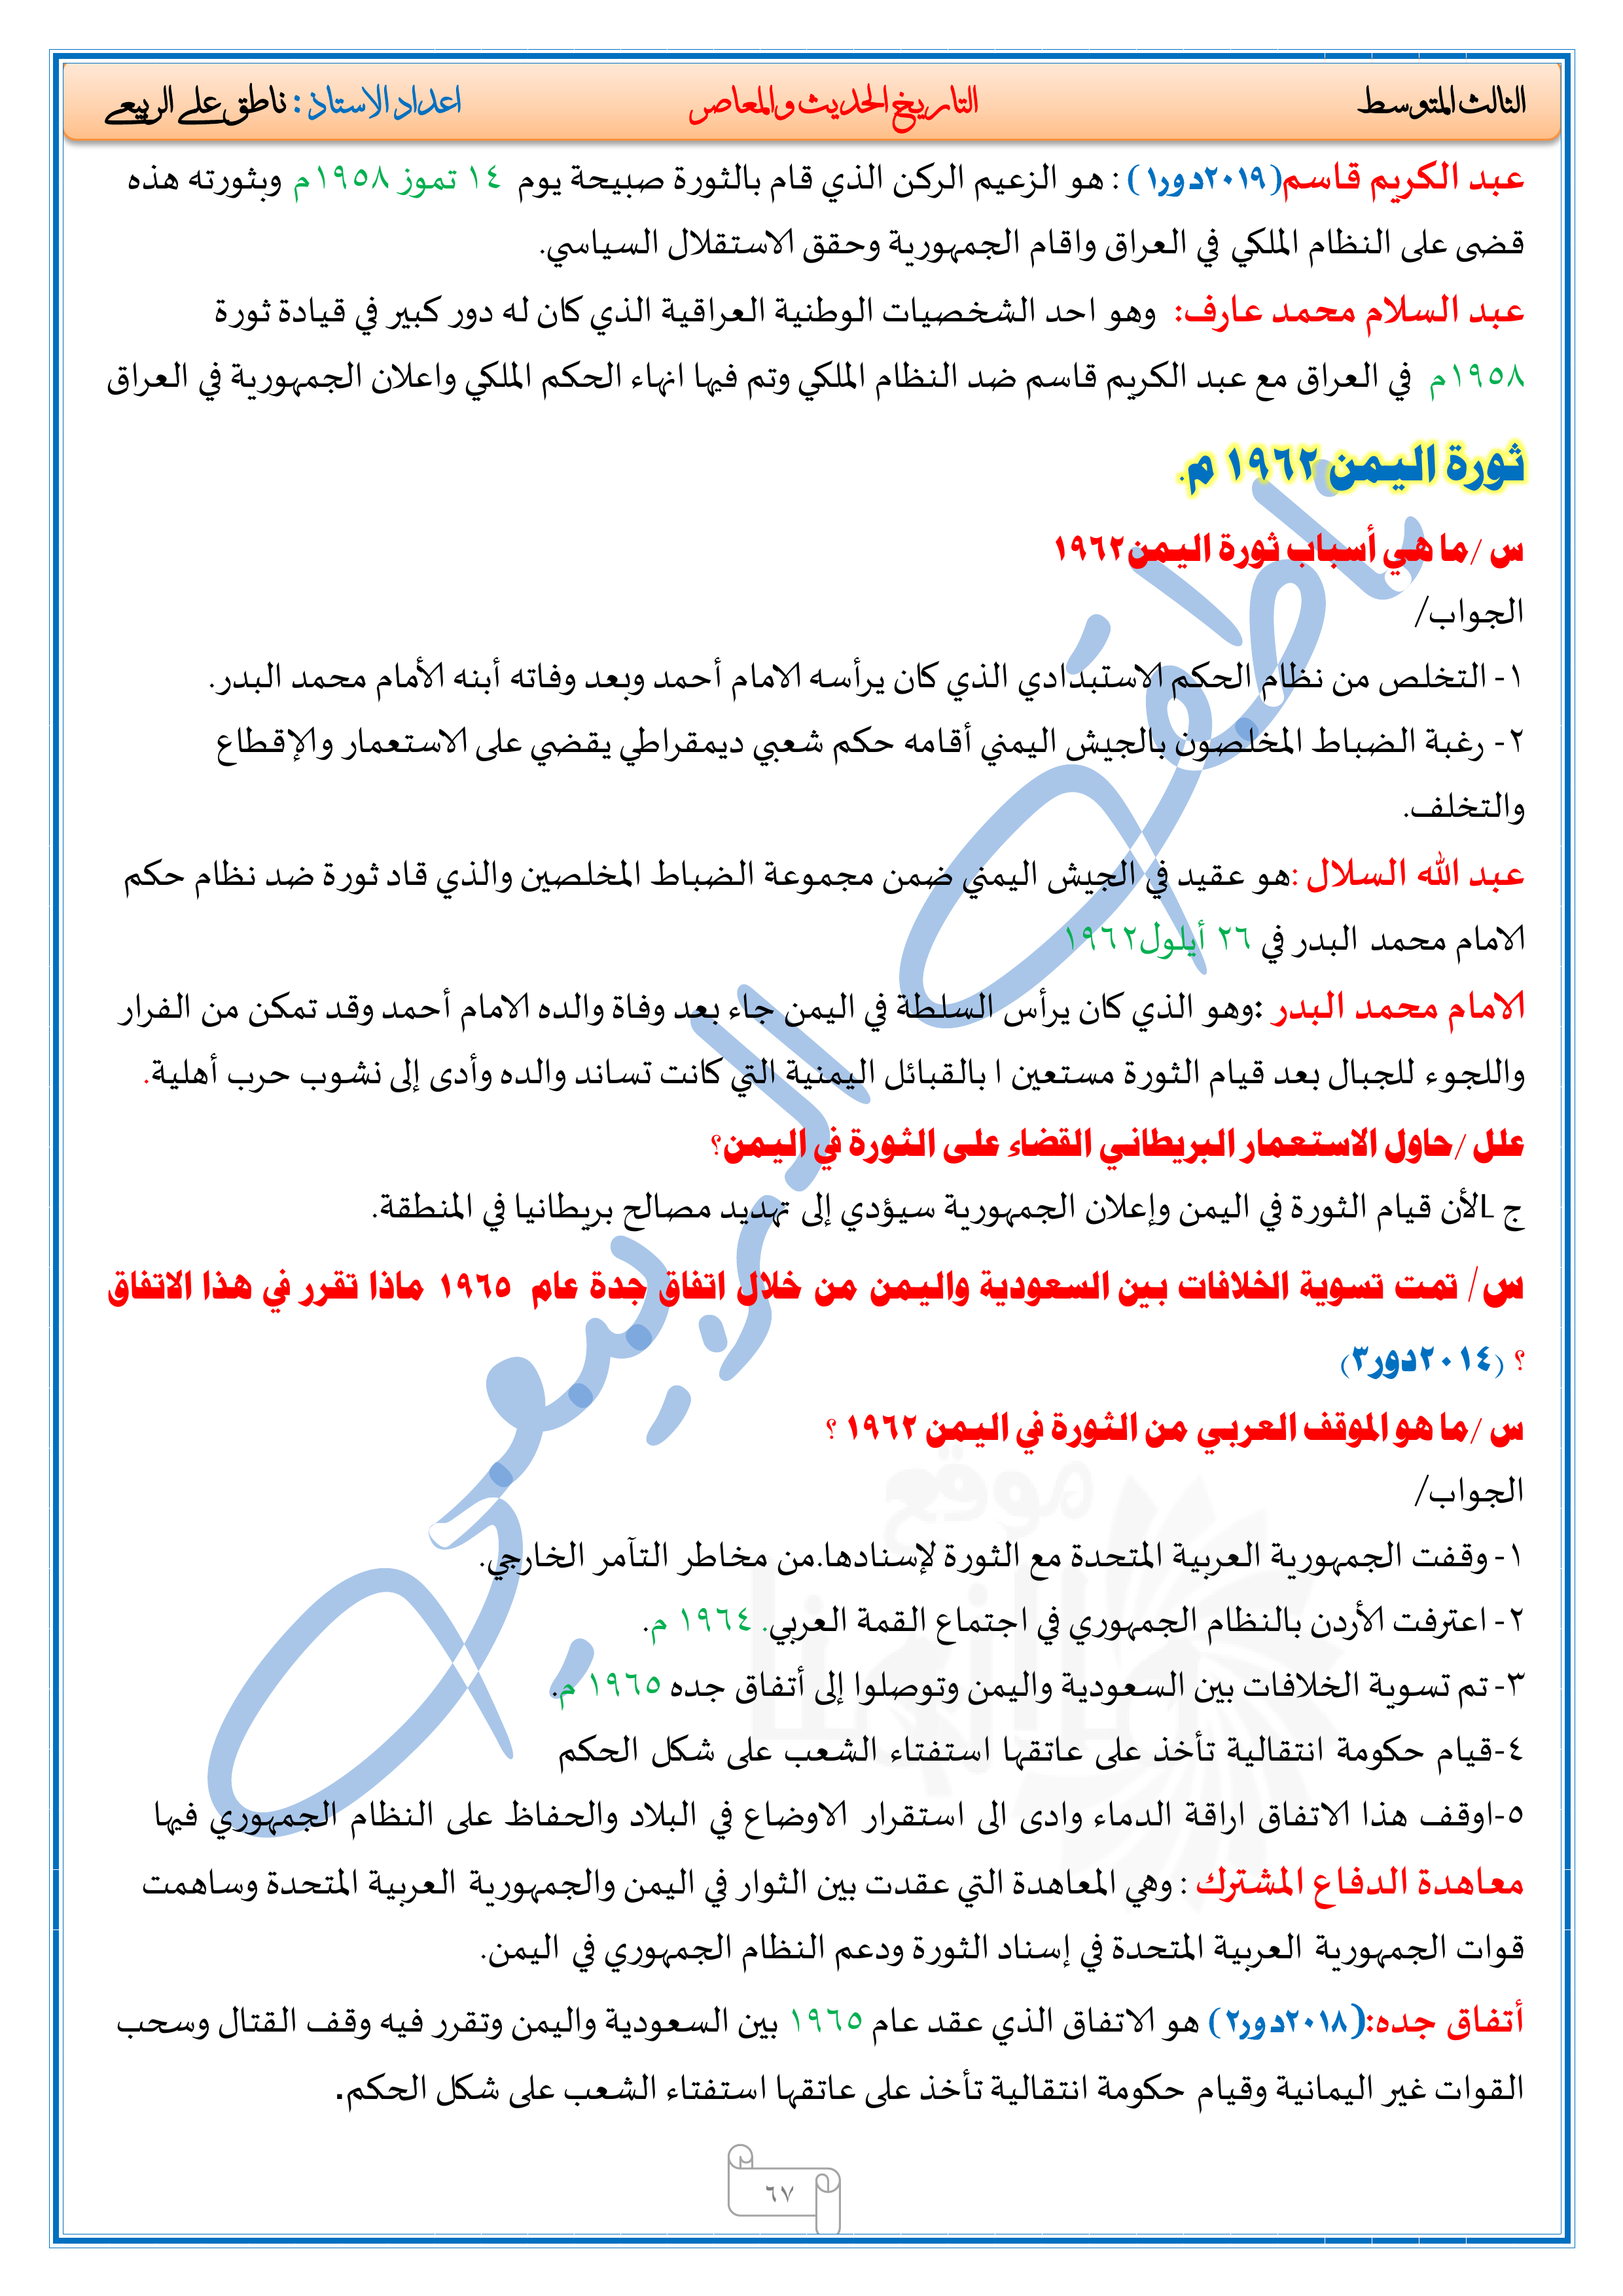 الثالث المتوسط التاريخ الحديث والمعاصر اعداد الاستاذ : ناطق علي الربيعي
عبد الكريم قاسم(٢٠١٩دور١) : هو الزعيم الركن الذي قام بالثورة صبيحة يوم ١٤ تموز ١٩٥٨م وبثورته هذه
قضى على النظام الملكي في العراق واقام الجمهورية وحقق الاستقلال السياسي.
عبد السلام محمد عارف: وهو احد الشخصيات الوطنية العراقية الذي كان له دور كبير في قيادة ثورة
١٩٥٨م في العراق مع عبد الكريم قاسم ضد النظام الملكي وتم فيها انهاء الحكم الملكي واعلان الجمهورية في العراق
ثورة اليمن ١٩٦٢ م.
س /ما هي أسباب ثورة اليمن١٩٦٢
الجواب/
١- التخلص من نظام الحكم الاستبدادي الذي كان يرأسه الامام أحمد وبعد وفاته أبنه الأمام محمد البدر.
٢- رغبة الضباط المخلصون بالجيش اليمني أقامه حكم شعبي ديمقراطي يقضي على الاستعمار والإقطاع
والتخلف.
عبد الله السلال :هو عقيد في الجيش اليمني ضمن مجموعة الضباط المخلصين والذي قاد ثورة ضد نظام حكم
الامام محمد البدر في ٢٦ أيلول١٩٦٢
الامام محمد البدر :وهو الذي كان يرأس السلطة في اليمن جاء بعد وفاة والده الامام أحمد وقد تمكن من الفرار
واللجوء للجبال بعد قيام الثورة مستعين ا بالقبائل اليمنية التي كانت تساند والده وأدى إلى نشوب حرب أهلية.
علل /حاول الاستعمار البريطاني القضاء على الثورة في اليمن؟
ج Lلأن قيام الثورة في اليمن وإعلان الجمهورية سيؤدي إلى تهديد مصالح بريطانيا في المنطقة.
س/ تمت تسوية الخلافات بين السعودية واليمن من خلال اتفاق جدة عام ١٩٦٥ ماذا تقرر في هذا الاتفاق
؟ (٢٠١٤دور٣)
س /ما هو الموقف العربي من الثورة في اليمن ١٩٦٢ ؟
الجواب/
١- وقفت الجمهورية العربية المتحدة مع الثورة لإسنادها.من مخاطر التآمر الخارجي.
٢- اعترفت الأردن بالنظام الجمهوري في اجتماع القمة العربي. ١٩٦٤ م.
٣- تم تسوية الخلافات بين السعودية واليمن وتوصلوا إلى أتفاق جده ١٩٦٥ م.
٤-قيام حكومة انتقالية تأخذ على عاتقها استفتاء الشعب على شكل الحكم
٥-اوقف هذا الاتفاق اراقة الدماء وادى الى استقرار الاوضاع في البلاد والحفاظ على النظام الجمهوري فيها
معاهدة الدفاع المشترك : وهي المعاهدة التي عقدت بين الثوار في اليمن والجمهورية العربية المتحدة وساهمت
قوات الجمهورية العربية المتحدة في إسناد الثورة ودعم النظام الجمهوري في اليمن.
أتفاق جده:(٢٠١٨دور٢) هو الاتفاق الذي عقد عام ١٩٦٥ بين السعودية واليمن وتقرر فيه وقف القتال وسحب
القوات غير اليمانية وقيام حكومة انتقالية تأخذ على عاتقها استفتاء الشعب على شكل الحكم.
٦٧
ناطق الربيعي
موقع